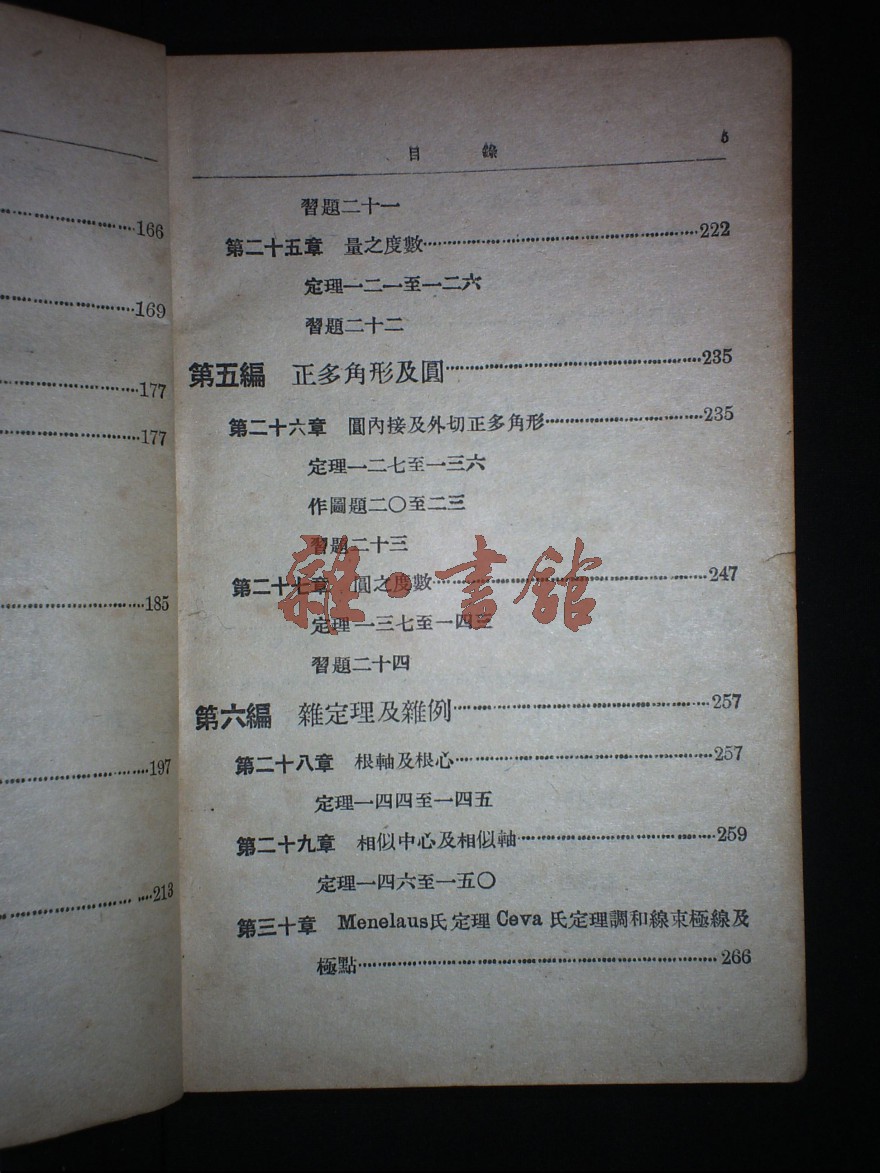 166
169
177
177
185
197
213
目 錄 5
習題二十一
第二十五章 量之度數…222
定理一二一至一二六
習題二十二
第五編 正多角形及圓…235
第二十六章 圓內接及外切正多角形…235
定理一二七至一三六
作圖題二〇至二三
習題二十三
第二十七章 圓之度數…247
定理一三七至一四三
習題二十四
第六編 雜定理及雜例…257
第二十八章 根軸及根心…257
定理一四四至一四五
第二十九章 相似中心及相似軸…259
定理一四六至一五〇
第三十章 Menelaus氏定理 Ceva 氏定理調和線束極線及
極點…266
雜·書館